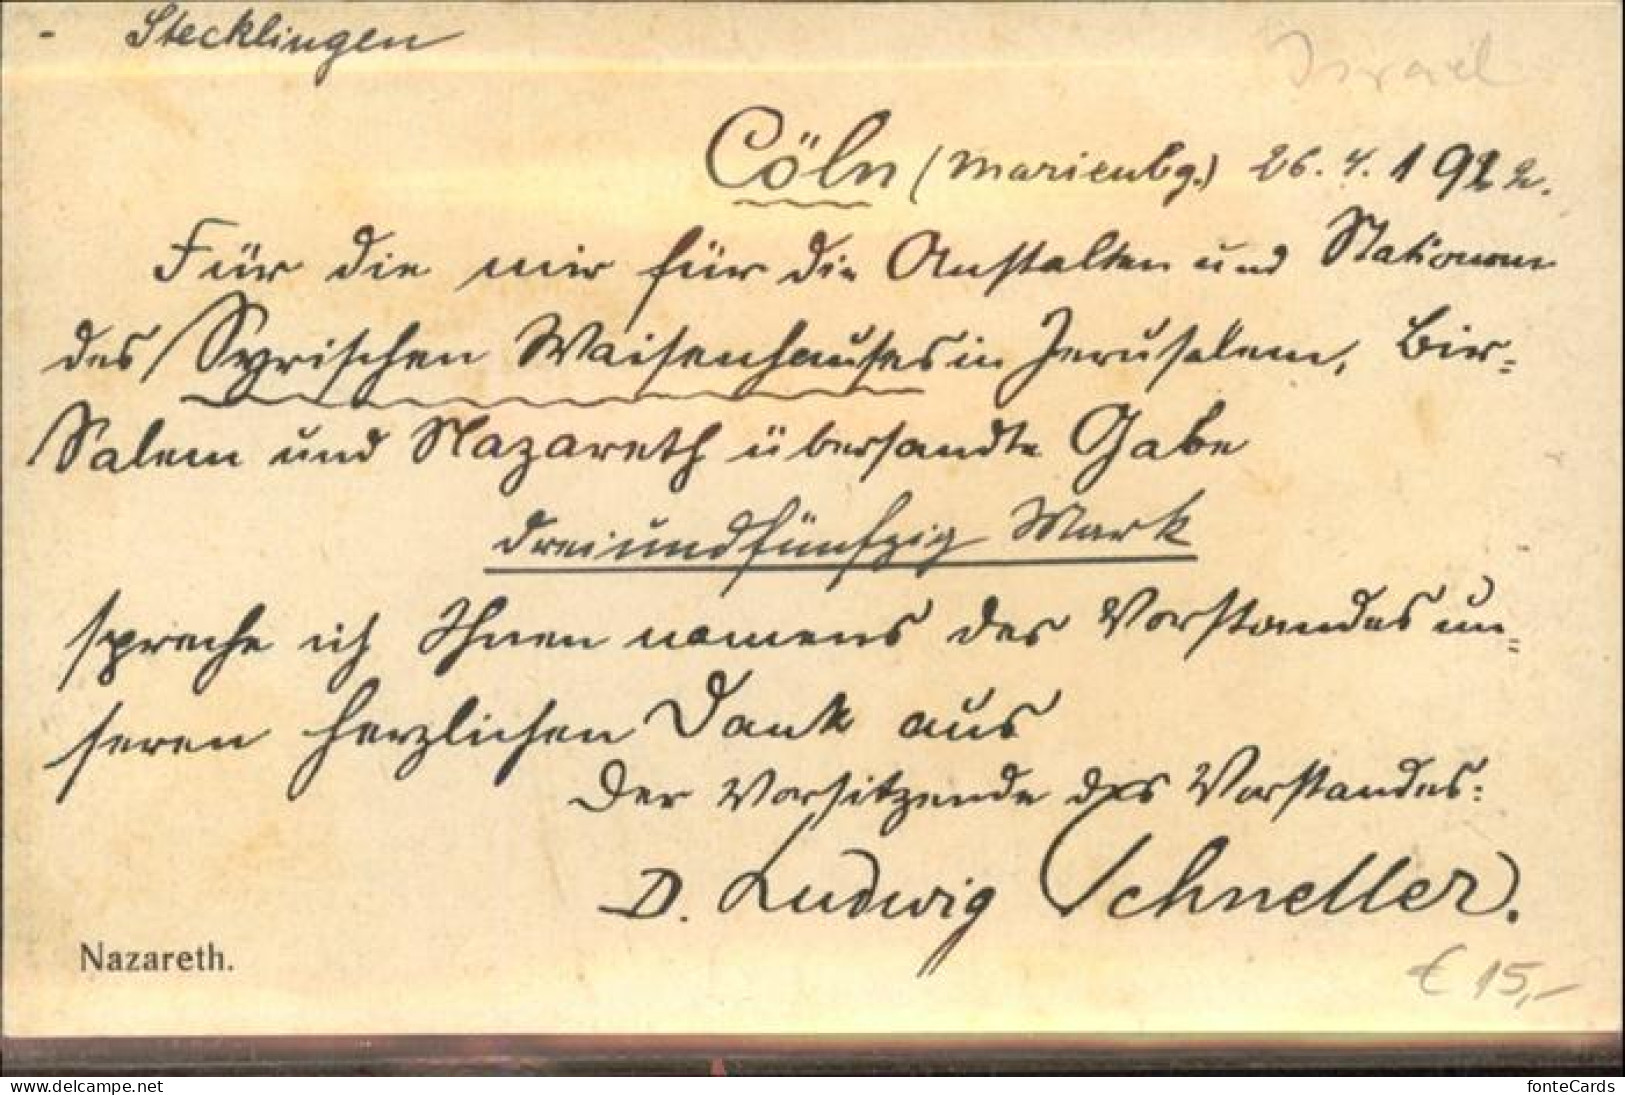 - Stecklingen
Israel
Cöln (Marienbg.) 26. 4. 1922.
Für die mir für die Anstalten und Stationen
des Syrischen Waisenhauses in Jerusalem, Bir=
Salem und Nazareth übersandte Gabe
dreiundfünfzig Mark
spreche ich Ihnen namens des Vorstandes un=
seren herzlichen Dank aus
Der Vorsitzende des Vorstandes:
D. Ludwig Schneller.
Nazareth.
€ 15,-
www.delcampe.net
fonteCards